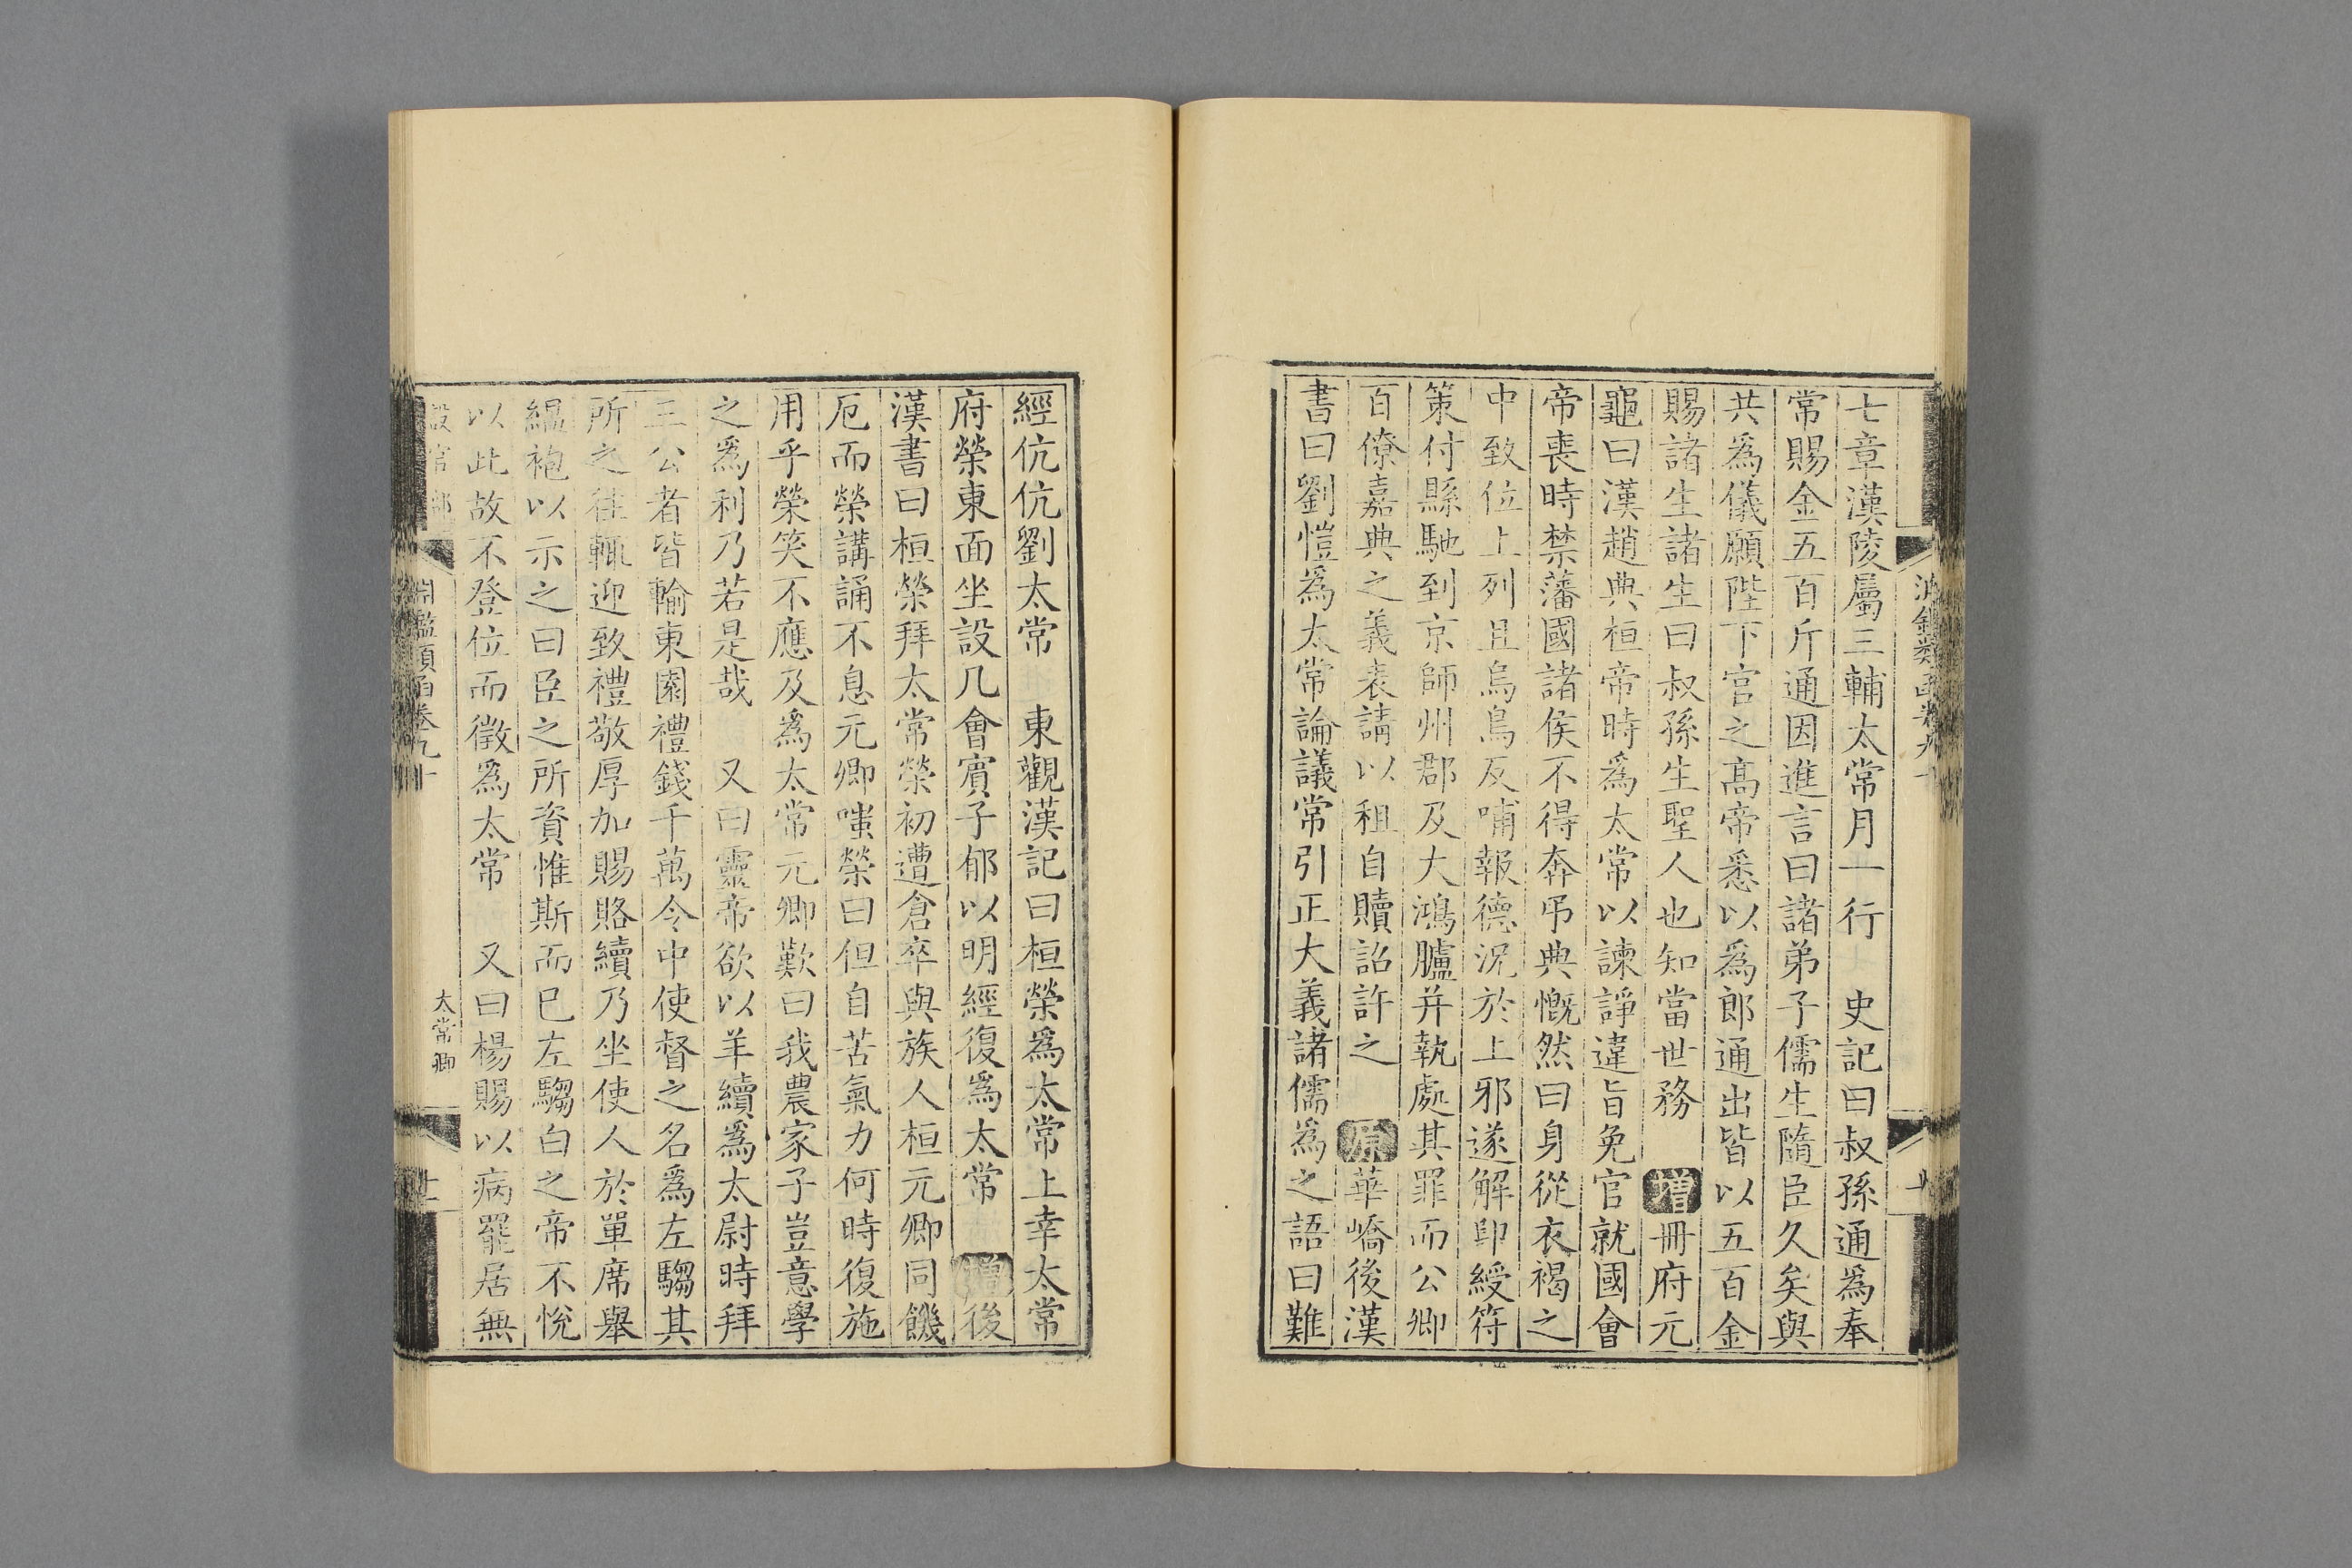 七章漢陵屬三輔太常月一行　史記曰叔孫通爲奉
常賜金五百斤通因進言曰諸弟子儒生隨臣久矣與
共爲儀願陛下官之高帝悉以爲郎通出皆以五百金
賜諸生諸生曰叔孫生聖人也知當世務　增冊府元
龜曰漢趙典桓帝時爲太常以諫諍違旨免官就國會
帝喪時禁藩國諸侯不得奔弔典慨然曰身從衣褐之
中致位上列且烏鳥反哺報德況於上邪遂解印綬符
策付縣馳到京師州郡及大鴻臚幷執處其罪而公卿
百僚嘉典之義表請以租自贖詔許之　原華嶠後漢
書曰劉愷爲太常論議常引正大義諸儒爲之語曰難
經伉伉劉太常　東觀漢記曰桓榮爲太常上幸太常
府榮東面坐設几會賓子郁以明經復爲太常　增後
漢書曰桓榮拜太常榮初遭倉卒與族人桓元卿同饑
厄而榮講誦不息元卿嗤榮曰但自苦氣力何時復施
用乎榮笑不應及爲太常元卿歎曰我農家子豈意學
之爲利乃若是哉　又曰靈帝欲以羊續爲太尉時拜
三公者皆輸東園禮錢千萬令中使督之名爲左騶其
所之往輒迎致禮敬厚加賜賂續乃坐使人於單席舉
縕袍以示之曰臣之所資惟斯而已左騶白之帝不悅
以此故不登位而徵爲太常　又曰楊賜以病罷居無
淵鑑類函卷九十
太常卿